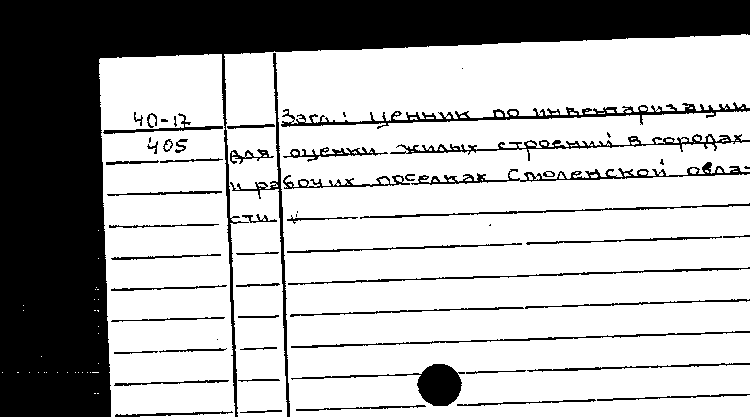 40-17 Загл.: Ценник по инвентаризации
405 для оценки жилых строений в городах
и рабочих поселках Смоленской обла-
сти